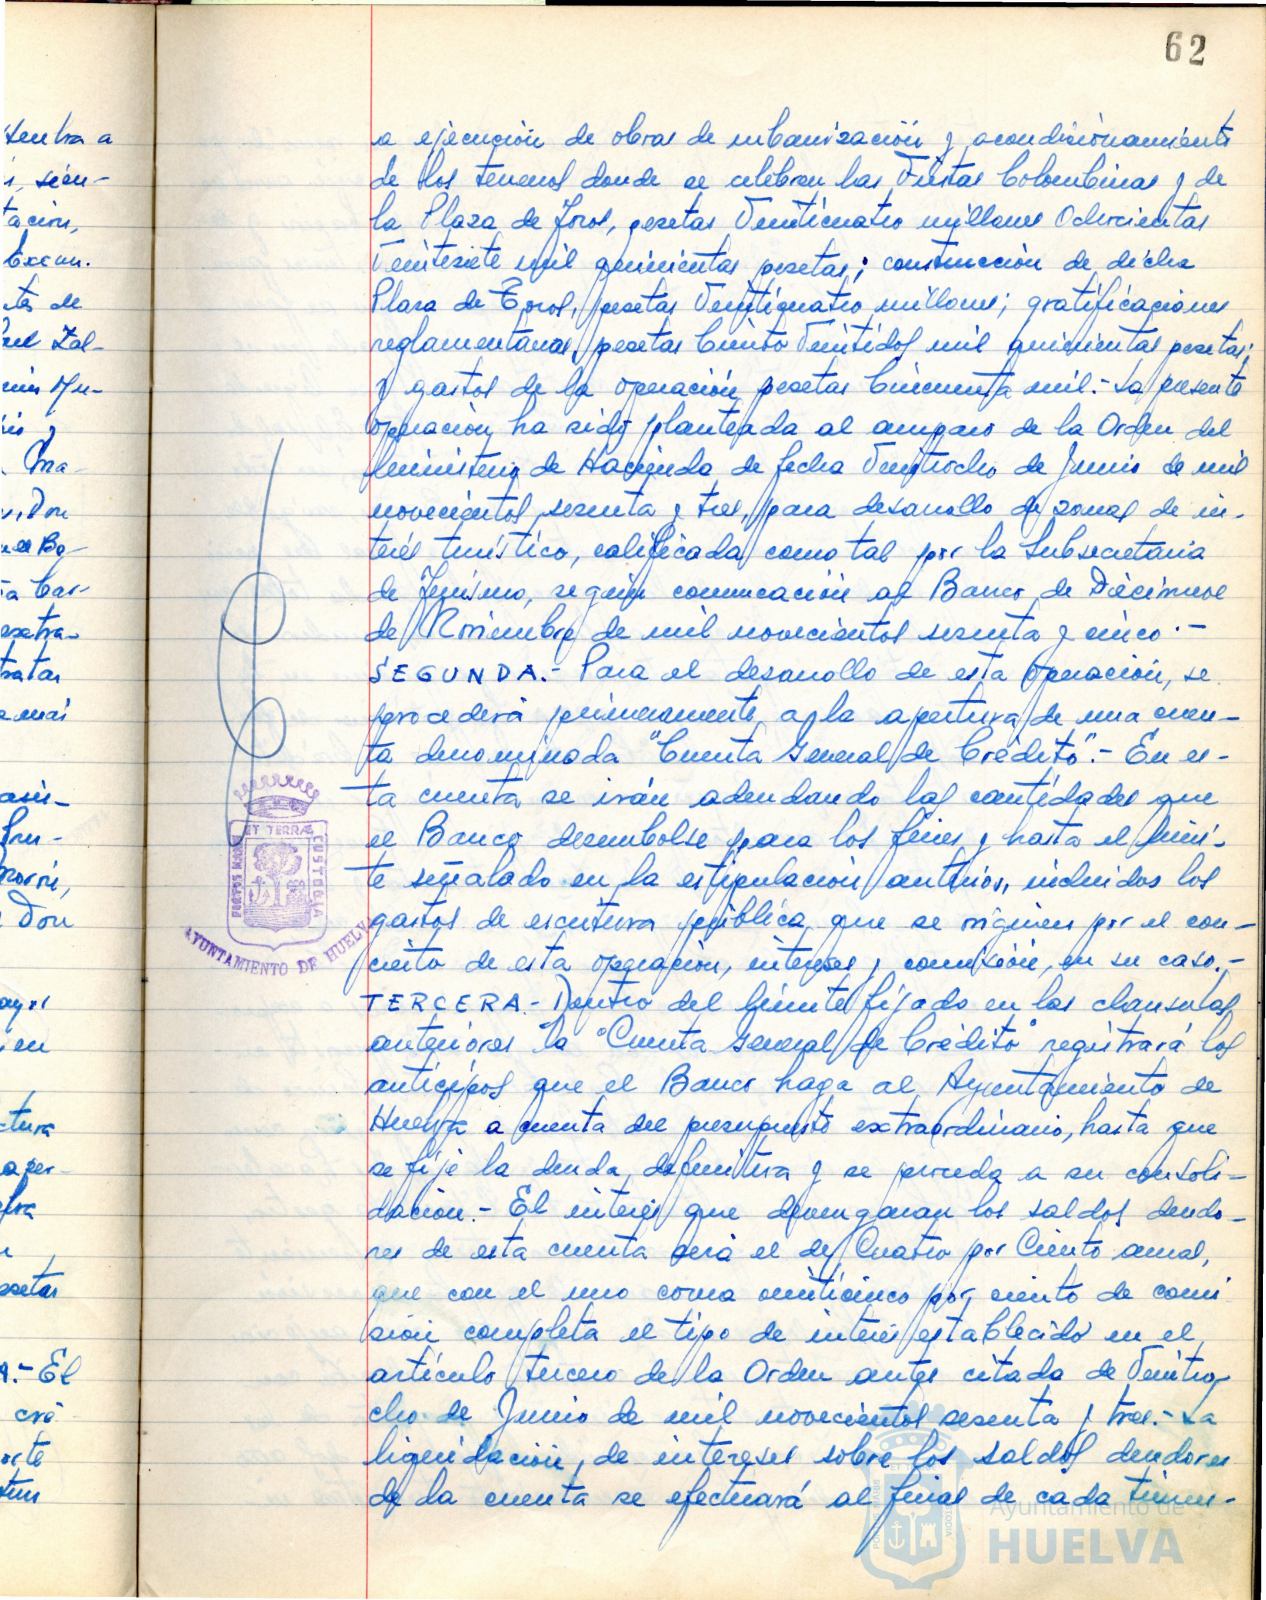 62
a ejecución de obras de urbanización y acondicionamiento
de los terrenos donde se celebren las Fiestas Colombinas y de
la Plaza de Toros, pesetas Veinticuatro millones Ochocientas
Veintesiete mil quinientas pesetas; construcción de dicha
Plaza de Toros, pesetas Veinticuatro millones; gratificaciones
reglamentarias, pesetas Ciento Veintidos mil quinientas pesetas;
y gastos de la operación pesetas Cincuenta mil.- La presente
operación ha sido planteada al amparo de la Orden del
Ministerio de Hacienda de fecha Veintiocho de Junio de mil
novecientos sesenta y tres, para desarrollo de zonas de in-
terés turístico, calificada como tal por la Subsecretaria
de Turismo, según comunicación al Banco de Diecinueve
de Noviembre de mil novecientos sesenta y cinco.-
SEGUNDA.- Para el desarrollo de esta operación, se
procederá primeramente a la apertura de una cuen-
ta denominada "Cuenta General de Crédito".- En es-
ta cuenta se irán adeudando las cantidades que
el Banco desembolse para los fines y hasta el lími-
te señalado en la estipulación anterior, incluidos los
gastos de escritura pública que se originen por el con-
cierto de esta operación, intereses y comisión, en su caso.-
TERCERA.- Dentro del límite fijado en las clausulas
anteriores la "Cuenta General de Crédito" registrará los
anticipos que el Banco haga al Ayuntamiento de
Huelva a cuenta del presupuesto extraordinario, hasta que
se fije la deuda definitiva y se proceda a su consoli-
dación.- El interés que devengaran los saldos deudo-
res de esta cuenta será el de Cuatro por Ciento anual,
que con el uno coma veinticinco por ciento de comi
sión completa el tipo de interés establecido en el
artículo tercero de la Orden antes citada de Veintio-
cho de Junio de mil novecientos sesenta y tres.- La
liquidación de intereses sobre los saldos deudores
de la cuenta se efectuará al final de cada trimes-
PORTUS MARIS ET TERRAE CUSTODIA
AYUNTAMIENTO DE HUELVA
Ayuntamiento de
HUELVA